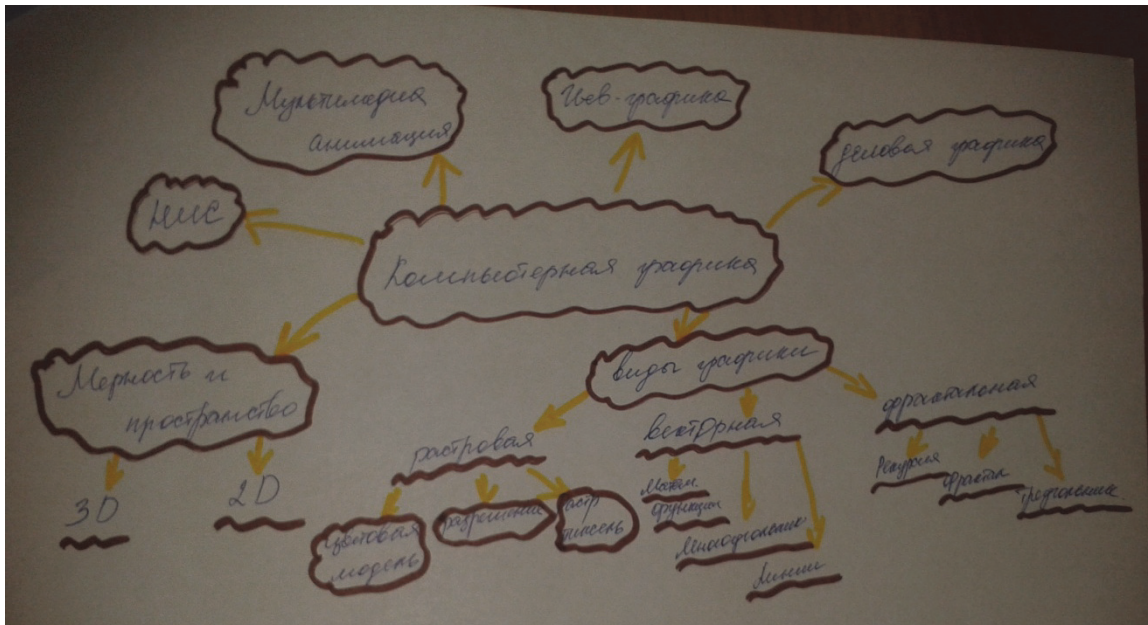 Мультимедиа
анимация
Шев-графика
деловая графика
НИС
Компьютерная графика
Мерность и
пространство
3D
2D
виды графики
растровая
цветовая
модель
разрешение
пиксель
векторная
функции
Линии
фрактальная
Рекурсия
Фрактал